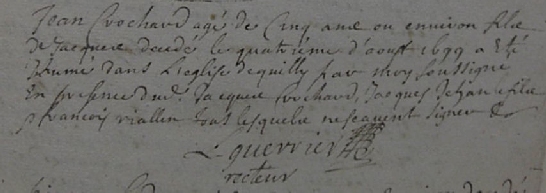 Jean Crochard agé de Cinq ans ou environ fils
de Jacques decedé le quatriéme d'aoust 1699 a Eté
Inumé dans L'eglise dequilly par moy soussigné
En presence dud. Jacques Crochard, Jacques Jehan, fils
françois viallen tous lesquels ne sçauent signer
L guerrier
recteur